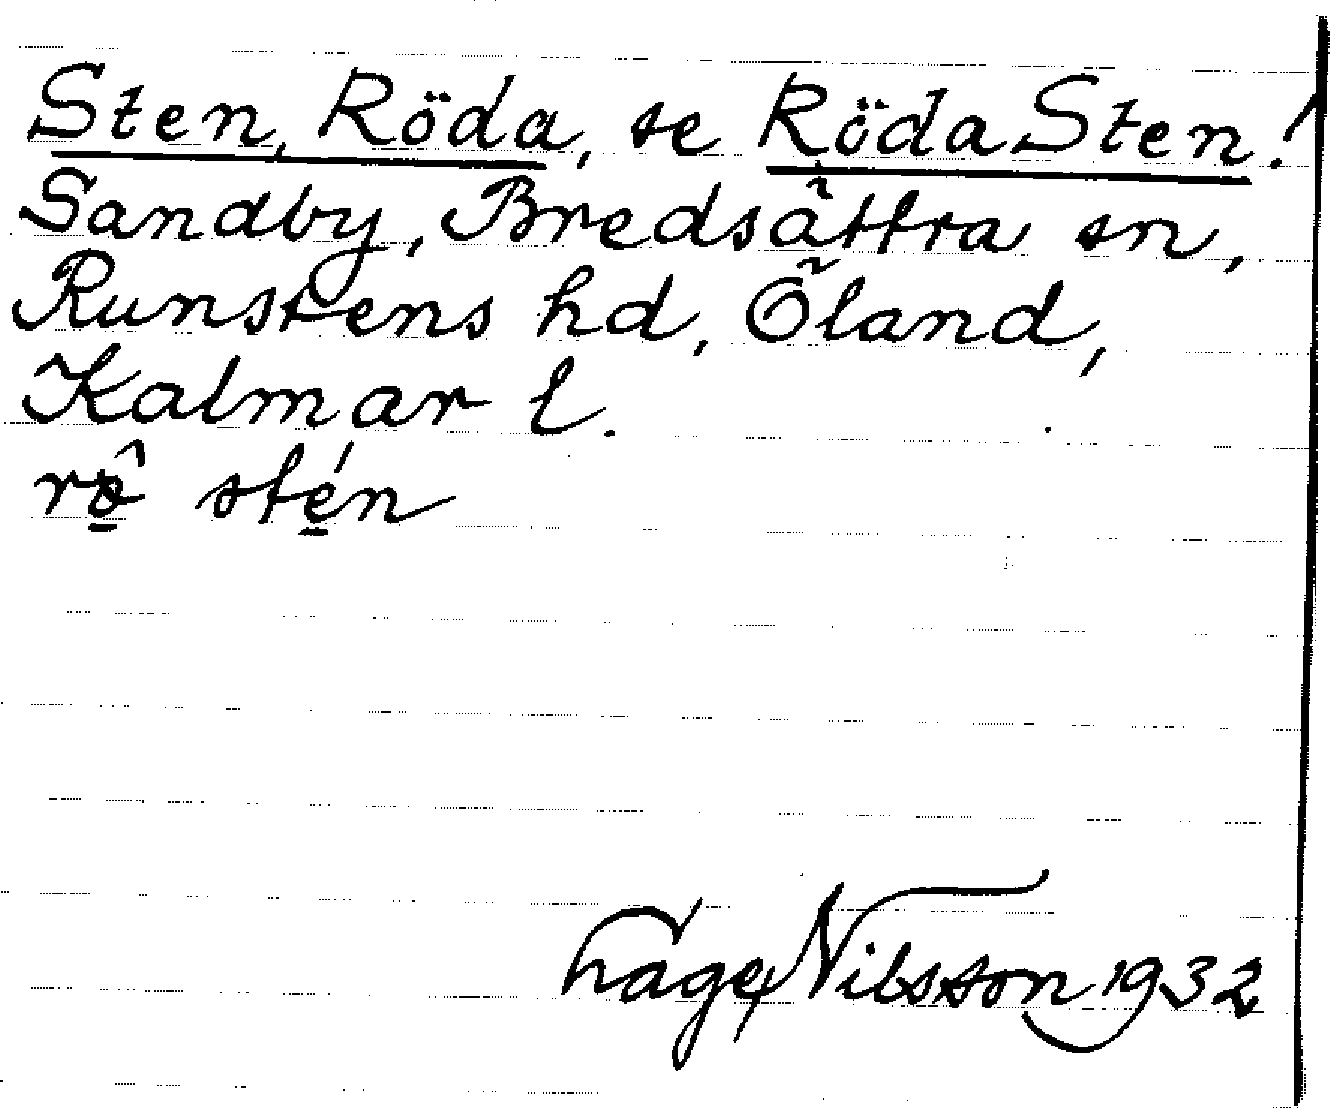 Sten, Röda, se Röda Sten!
Sandby, Bredsättra sn,
Runstens hd, Öland,
Kalmar l.
rö̂ stén
Nilsson 1932